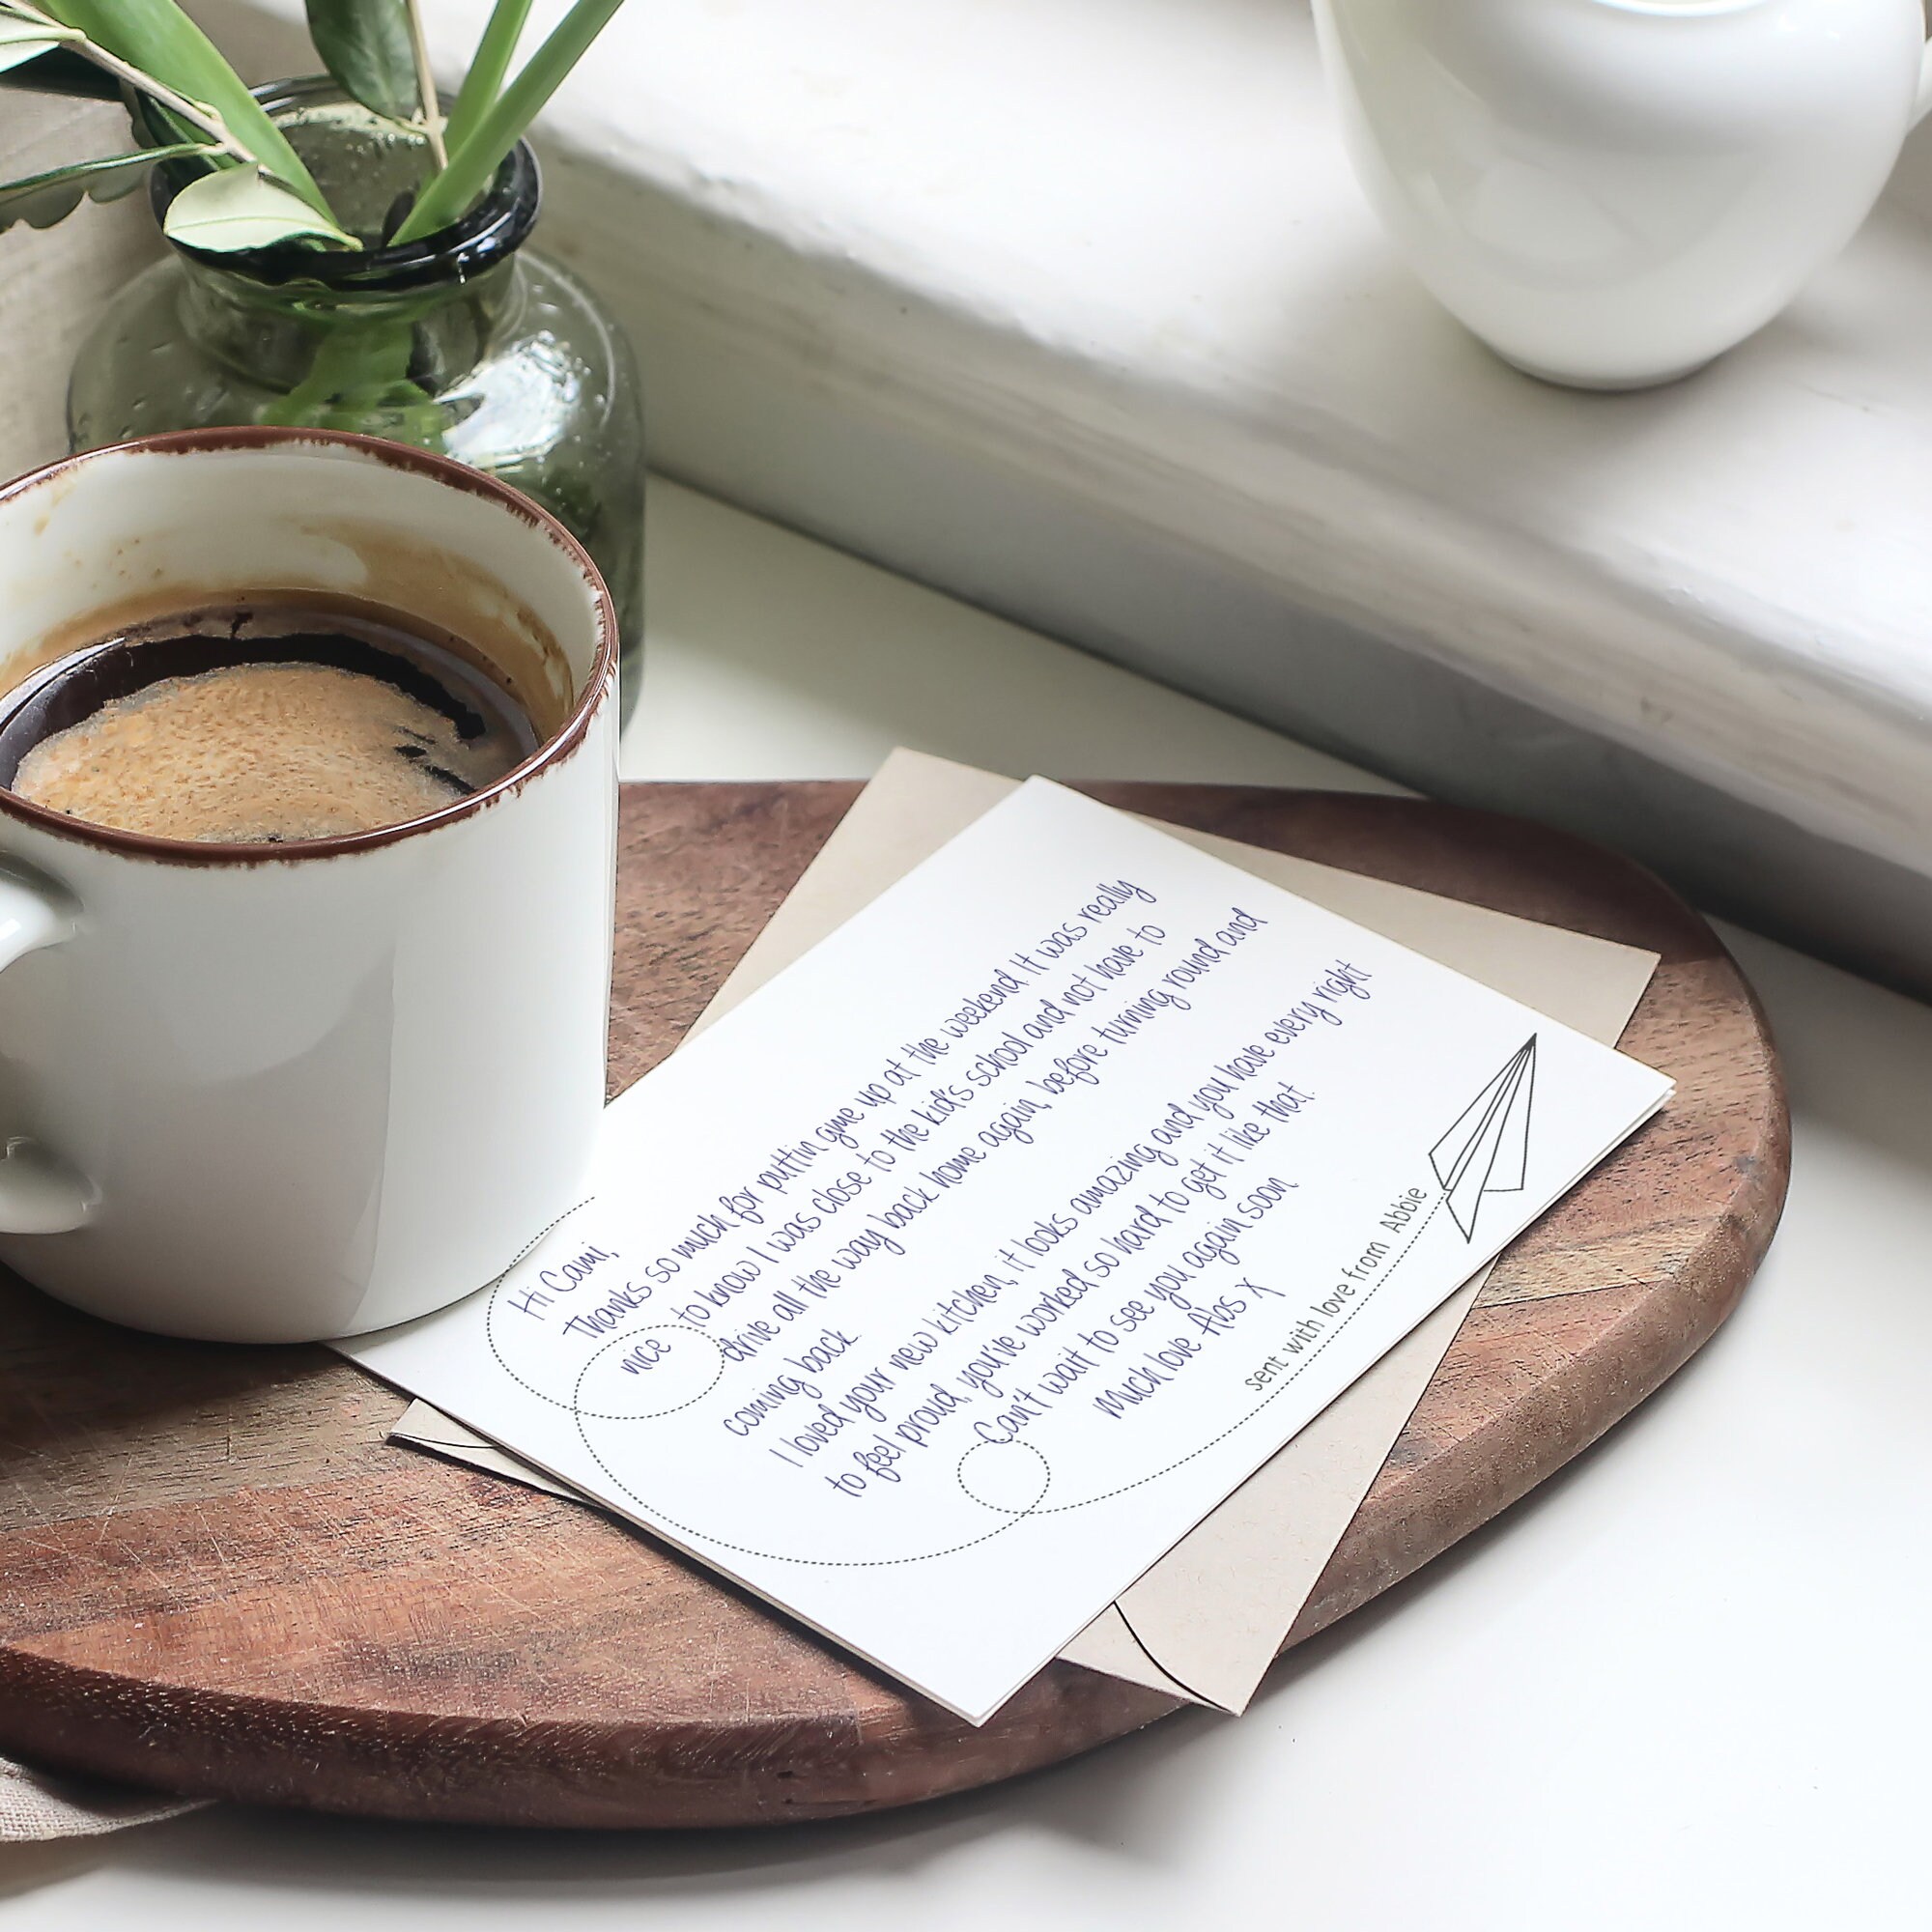 Hi Cami,
Thanks so much for puttin gme up at the weekend. It was really
nice to know I was close to the kid's school and not have to
drive all the way back home again, before turning round and
coming back.
I loved your new kitchen, it looks amazing and you have every right
to feel proud, you've worked so hard to get it like that.
Can't wait to see you again soon.
Much love Abs x
sent with love from Abbie